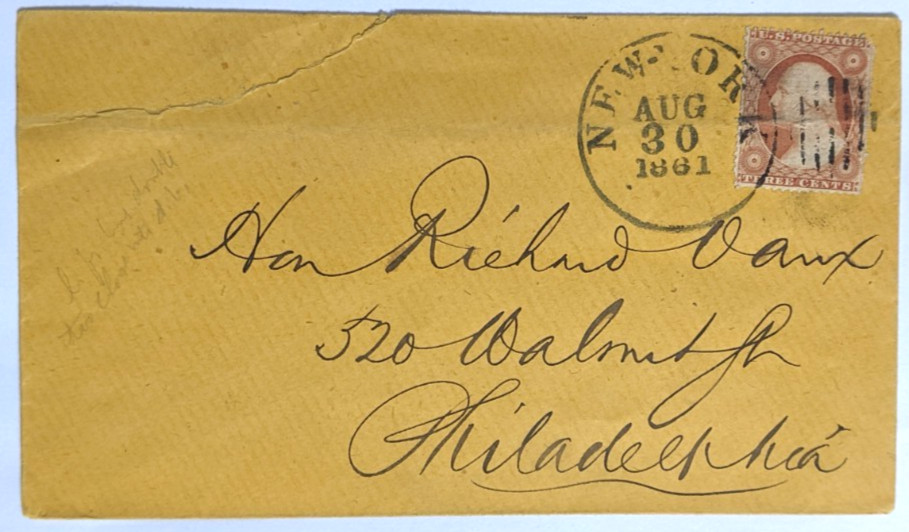 U.S. POSTAGE.
NEW-YORK
AUG
30
1861
THREE CENTS.
Hon Richard Vaux
520 Walnut St
Philadelphia